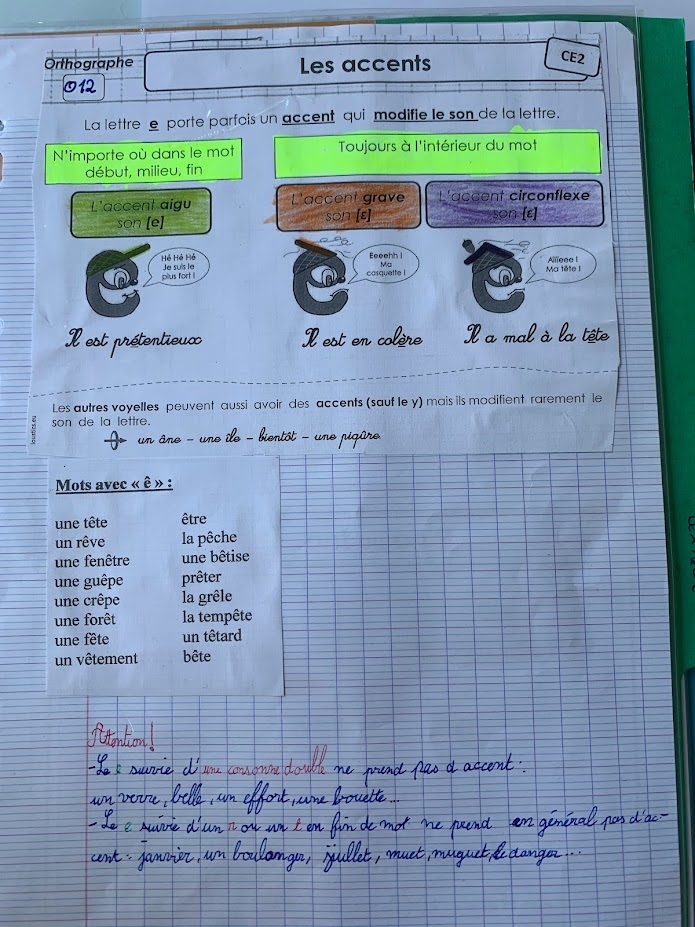 Orthographe
O12
Les accents
CE2
La lettre e porte parfois un accent qui modifie le son de la lettre.
N'importe où dans le mot
début, milieu, fin
Toujours à l'intérieur du mot
L'accent aigu
son [e]
L'accent grave
son [ɛ]
L'accent circonflexe
son [ɛ]
Hé Hé Hé
Je suis le
plus fort !
Eeeehh !
Ma
casquette !
Aïïeee !
Ma tête !
Il est prétentieux
Il est en colère
Il a mal à la tête
Les autres voyelles peuvent aussi avoir des accents (sauf le y) mais ils modifient rarement le
son de la lettre.
un âne - une île - bientôt - une piqûre
loustics.eu
Mots avec « ê » :
une tête
un rêve
une fenêtre
une guêpe
une crêpe
une forêt
une fête
un vêtement
être
la pêche
une bêtise
prêter
la grêle
la tempête
un têtard
bête
Attention !
- Le e suivie d'une consonne double ne prend pas d accent :
un verre, belle, un effort, une bouette...
- Le e suivie d'un r ou un t en fin de mot ne prend en général pas d'ac-
cent : janvier, un boulanger, juillet, muet, muguet, le danger...